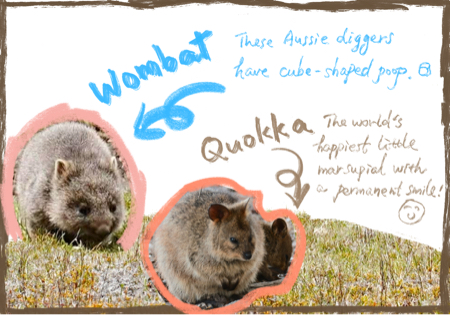 Wombat
These Aussie diggers
have cube-shaped poop.
Quokka
The world's
happiest little
marsupial with
a permanent smile!